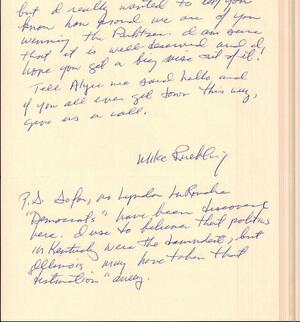 but I really wanted to let you
know how proud we are of you
winning the Pulitzer. I am sure
that it is well deserved and I
hope you get a big raise out of it!
Tell Alyce we said hello, and
if you all ever get down this way,
give us a call.
Mike
P.S. So far, no Lyndon LaRouche
"Democrats" have been discovered
here. I use to believe that politics
in Kentucky were the damndest, but
Illinois may have taken that
"distinction" away.